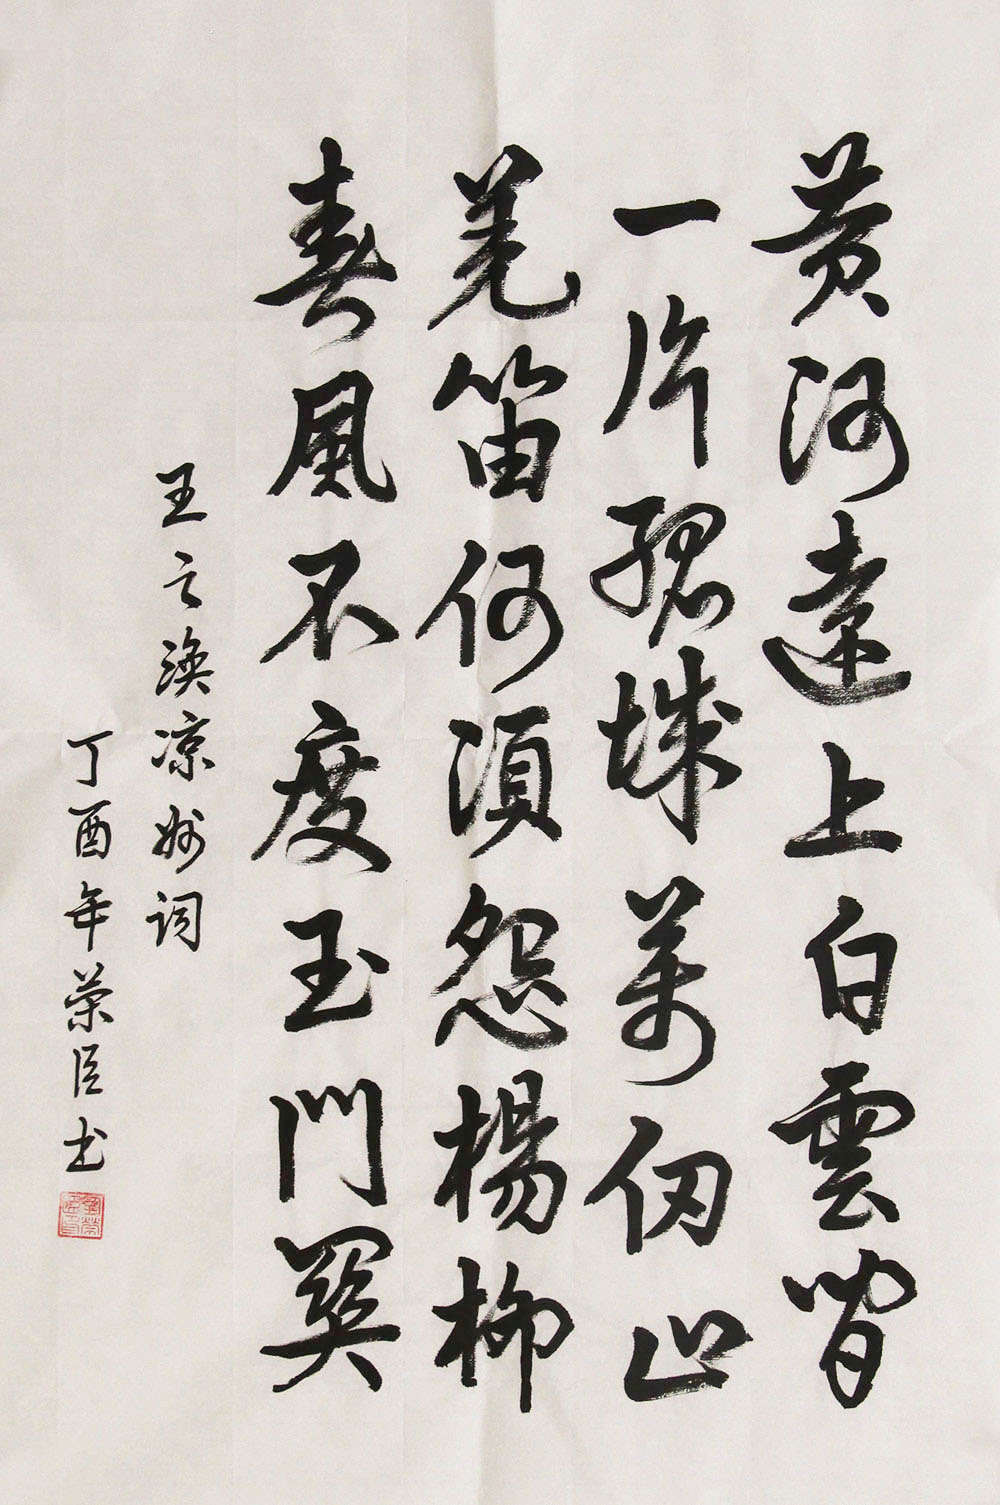 黄河遠上白雲間
一片孤城萬仞山
羌笛何須怨楊柳
春風不度玉門關
王之渙凉州詞
丁酉年荣臣书